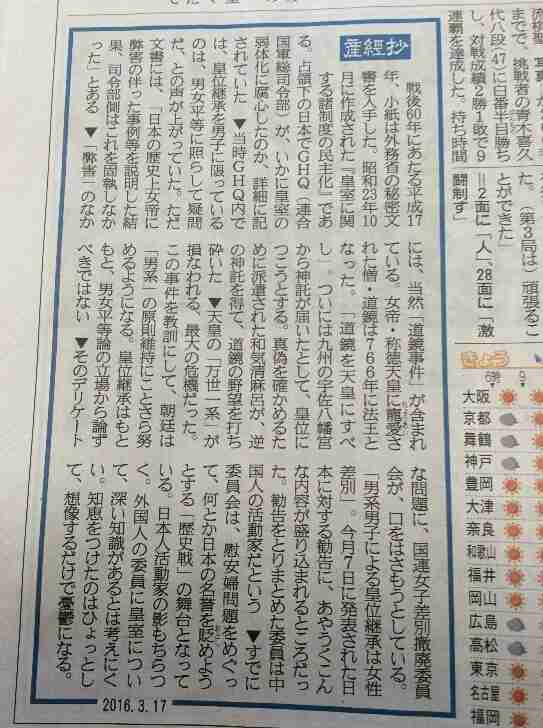 流棋聖
までで、挑戦者の青木喜久
代八段(47)に白番半目勝ち
し、対戦成績2勝1敗で9
連覇を達成した。持ち時間
(第3局は)頑張るこ
とができた」
＝2面に「人」、28面に「激
闘制す」
産経抄
戦後60年にあたる平成17
年、小紙は外務省の秘密文
書を入手した。昭和23年10
月に作成された『皇室に関
する諸制度の民主化』であ
る。占領下の日本でGHQ（連合
国軍総司令部）が、いかに皇室の
弱体化に腐心したのか、詳細に記
されていた▼当時GHQ内で
は、皇位継承を男子に限っている
のは、男女平等に照らして疑問
だ、との声が上がっていた。ただ
文書には、「日本の歴史上女帝に
弊害の伴った事例等を説明した結
果、司令部側はこれを固執しなか
った」とある▼「弊害」のなか
には、当然「道鏡事件」が含まれ
ている。女帝・称徳天皇に寵愛さ
れた僧・道鏡は766年に法王と
なった。「道鏡を天皇にすべ
し」。ついには九州の宇佐八幡宮
から神託が届いたとして、皇位に
つこうとする。真偽を確かめるた
めに派遣された和気清麻呂が、逆
の神託を得て、道鏡の野望を打ち
砕いた▼天皇の「万世一系」が
損なわれる、最大の危機だった。
この事件を教訓にして、朝廷は
「男系」の原則維持にことさら努
めるようになる。皇位継承はもと
もと、男女平等論の立場から論ず
べきではない▼そのデリケート
な問題に、国連女子差別撤廃委員
会が、口をはさもうとしている。
「男系男子による皇位継承は女性
差別」。今月7日に発表された日
本に対する勧告に、あやうくこん
な内容が盛り込まれるところだっ
た。勧告をとりまとめた委員は中
国人の活動家だという▼すでに
委員会は、慰安婦問題をめぐっ
て、何とか日本の名誉を貶めよう
とする「歴史戦」の舞台となって
いる。日本人活動家の影もちらつ
く。外国人の委員に皇室につい
て、深い知識があるとは考えにく
い。知恵をつけたのはひょっとし
て、想像するだけで憂鬱になる。
2016.3.17
きょう
6時
9
大阪
京都
舞鶴
神戸
豊岡
大津
奈良
和歌山
福井
岡山
広島
高松
東京
名古屋
福岡